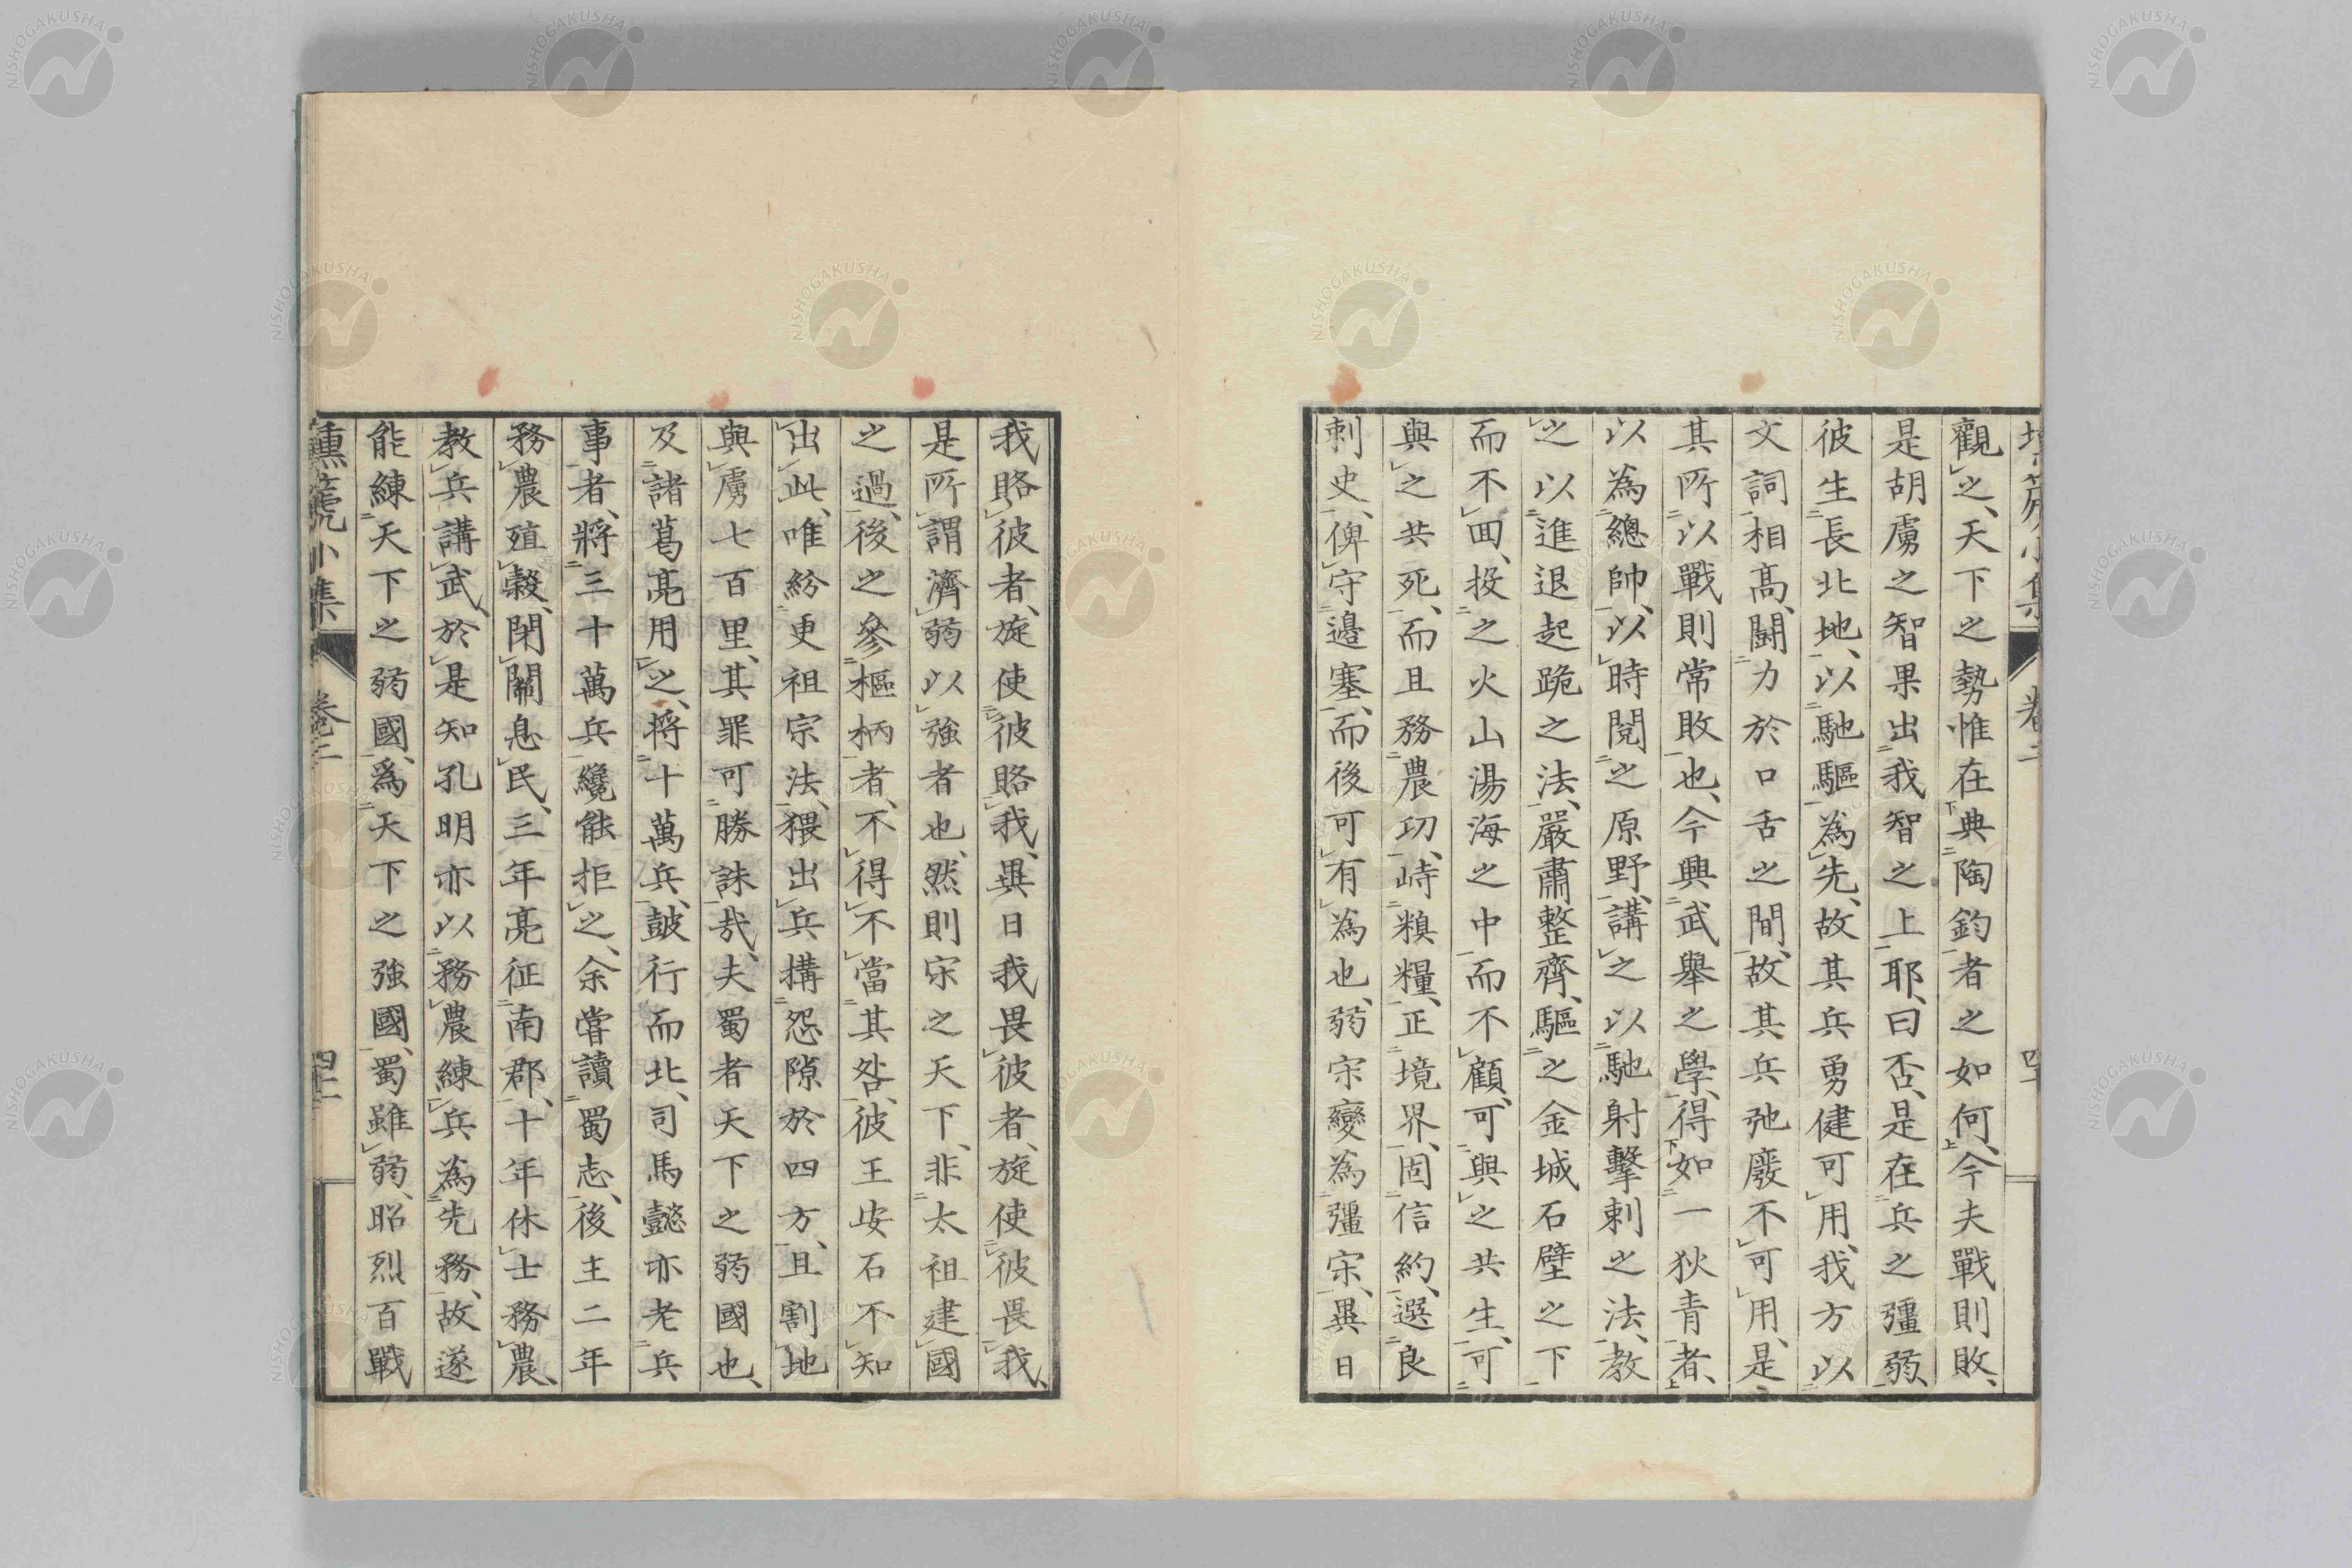 觀之、天下之勢惟在典陶鈞者之如何、今夫戰則敗、
是胡虜之智果出我智之上耶、曰否、是在兵之彊弱、
彼生長北地、以馳驅為先、故其兵勇健可用、我方以
文詞相高、鬪力於口舌之間、故其兵弛廢不可用、是
其所以戰則常敗也、今興武舉之學、得如一狄青者、
以為總帥、以時閱之原野、講之以馳射擊刺之法、教
之以進退起跪之法、嚴肅整齊、驅之金城石壁之下
而不回、投之火山湯海之中而不顧、可與之共生、可
與之共死、而且務農功、峙糗糧、正境界、固信約、選良
刺史、俾守邊塞、而後可有為也、弱宋變為彊宋、異日
我賂彼者、旋使彼賂我、異日我畏彼者、旋使彼畏我、
是所謂濟弱以強者也、然則宋之天下、非太祖建國
之過、後之參樞柄者、不得不當其咎、彼王安石不知
出此、唯紛更祖宗法、猥出兵搆怨隙於四方、且割地
與虜七百里、其罪可勝誅哉、夫蜀者天下之弱國也、
及諸葛亮用之、將十萬兵、鼓行而北、司馬懿亦老兵
事者、將三十萬兵纔能拒之、余嘗讀蜀志、後主二年
務農殖穀、閉關息民、三年亮征南郡、十年休士務農、
教兵講武、於是知孔明亦以務農練兵為先務、故遂
能練天下之弱國、為天下之強國、蜀雖弱、昭烈百戰
壎箎小集 卷二 四十二